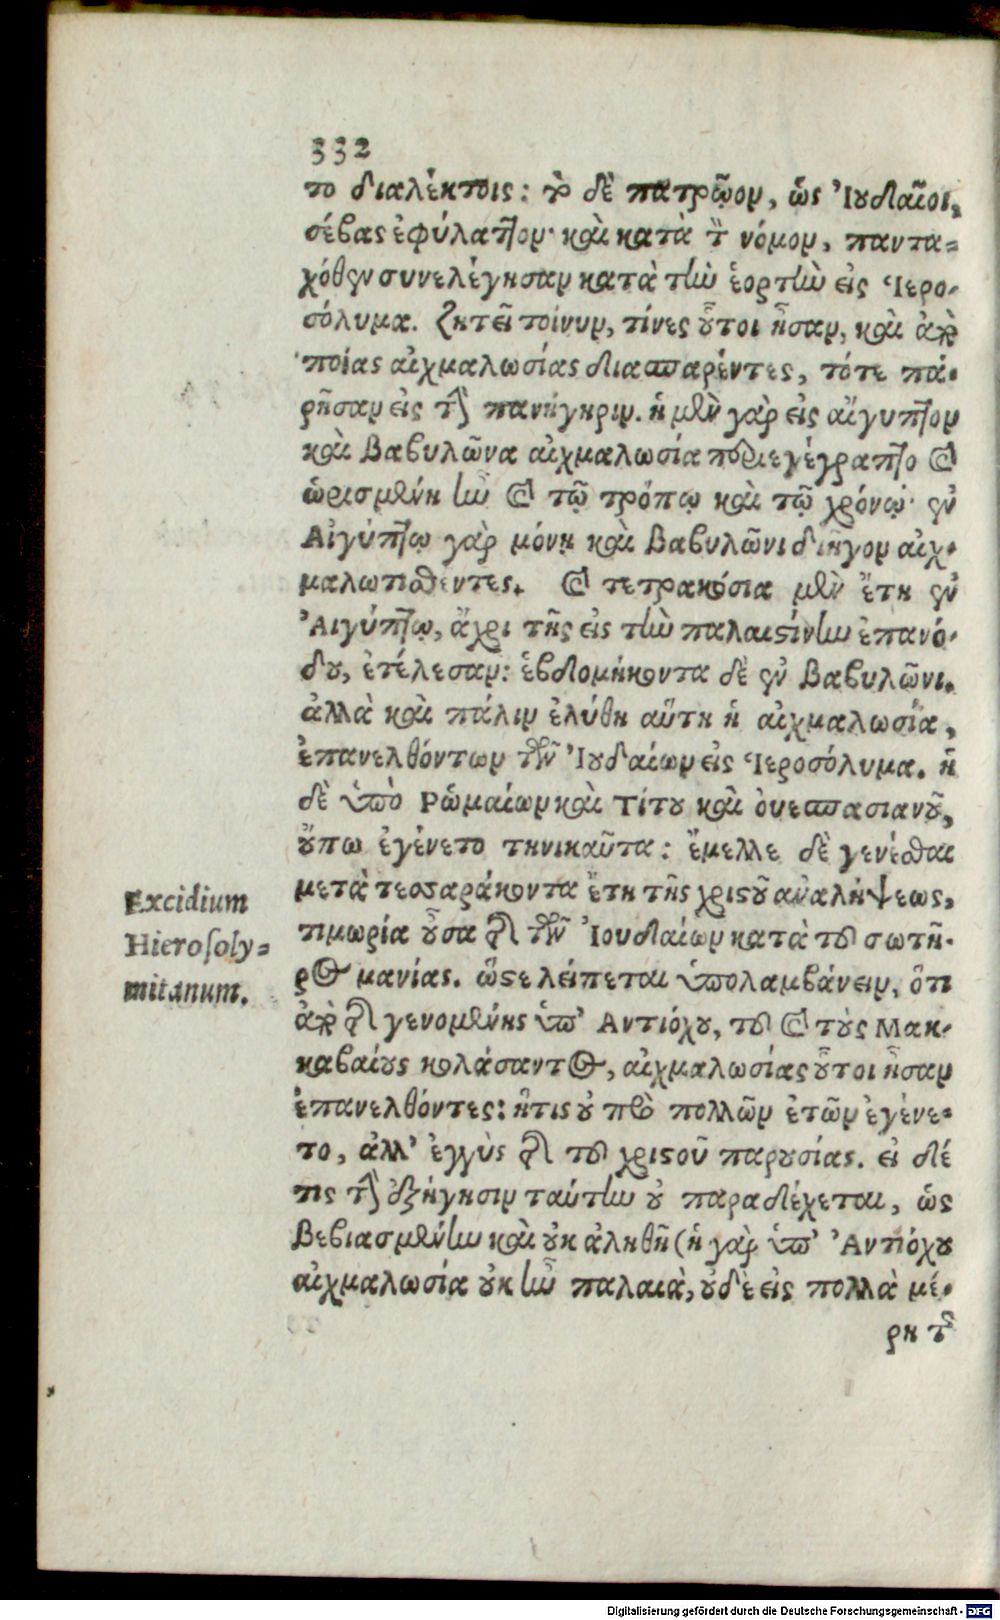 332
το διαλέκτοις: τὸ δὲ πατρῷον, ὡς Ἰουδαῖοι,
σέβας ἐφύλαττον· καὶ κατὰ τὸν νόμον, παντα-
χόθεν συνελέγησαν κατὰ τὴν ἑορτὴν εἰς Ἱερο-
σόλυμα. ζητεῖ τοίνυν, τίνες οὗτοι ἦσαν, καὶ ἀπὸ
ποίας αἰχμαλωσίας διασπαρέντες, τότε πά-
ρῆσαν εἰς τὴν πανήγηριν. ἡ μὲν γὰρ εἰς αἴγυπτον
καὶ Βαβυλῶνα αἰχμαλωσία περιεγέγραπτο καὶ
ὡρισμένη ἦν καὶ τῷ τρόπῳ καὶ τῷ χρόνῳ· ἐν
Αἰγύπτῳ γὰρ μόνῃ καὶ Βαβυλῶνι διῆγον αἰχ-
μαλωτισθέντες. καὶ τετρακόσια μὲν ἔτη ἐν
Ἀιγύπτῳ, ἄχρι τῆς εἰς τὴν παλαιστίνην ἐπανό-
δου, ἐτέλεσαν: ἑβδομήκοντα δὲ ἐν Βαβυλῶνι.
ἀλλὰ καὶ πάλιν ἐλύθη αὕτη ἡ αἰχμαλωσία,
ἐπανελθόντων τῶν Ἰουδαίων εἰς Ἱεροσόλυμα. ἡ
δὲ ὑπὸ Ρωμαίων καὶ Τίτου καὶ ὀυεσπασιανοῦ,
οὔπω ἐγένετο τηνικαῦτα: ἔμελλε δὲ γενέσθαι
μετὰ τεσσαράκοντα ἔτη τῆς χριστοῦ ἀναλήψεως,
τιμωρία οὖσα τῆς τῶν Ἰουδαίων κατὰ τοῦ σωτῆ-
ρος μανίας. ὥστε λείπεται ὑπολαμβάνειν, ὅτι
ἀπὸ τῆς γενομένης ὑπ' Αντιόχου, τοῦ καὶ τοὺς Μακ-
καβαίους κολάσαντος, αἰχμαλωσίας οὗτοι ἦσαν
ἐπανελθόντες: ἥτις οὐ πρὸ πολλῶν ἐτῶν ἐγένε-
το, ἀλλ' ἐγγὺς τῆς τοῦ χριστοῦ παρουσίας. εἰ δέ
τις τὴν ἐξήγησιν ταύτην οὐ παραδέχεται, ὡς
βεβιασμένην καὶ οὐκ ἀληθῆ (ἡ γὰρ ὑπ' Ἀντιόχου
αἰχμαλωσία οὐκ ἦν παλαιὰ, οὐδὲ εἰς πολλὰ μέ-
ρη τῆς
Excidium
Hierosoly-
mitanum.
Digitalisierung gefördert durch die Deutsche Forschungsgemeinschaft - DFG